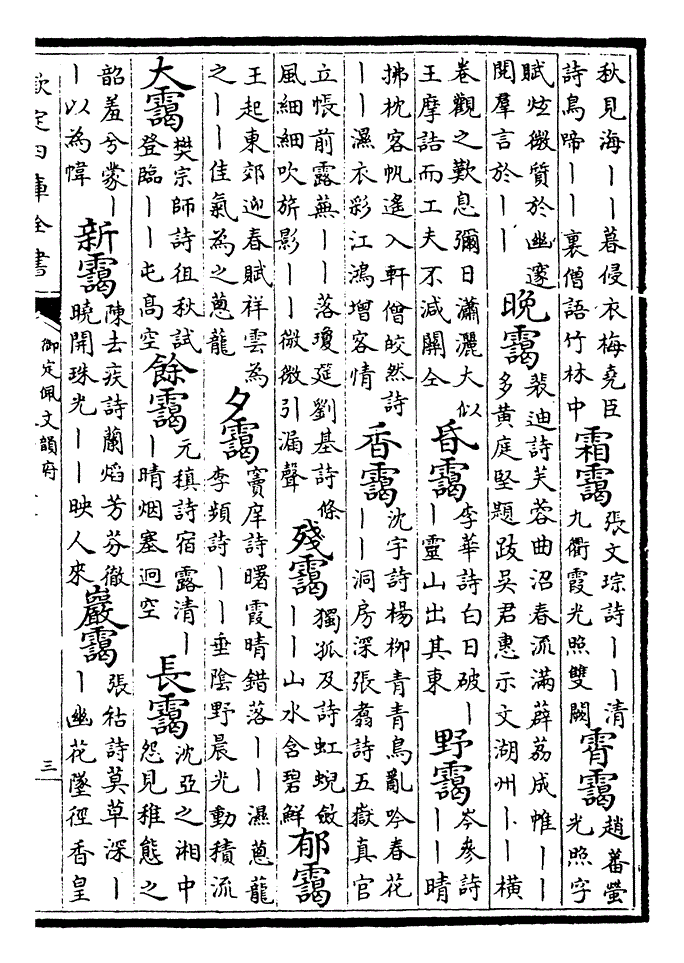 秋見海丨丨暮侵衣梅堯臣詩鳥啼丨丨裏僧語竹林中霜靄張文琮詩丨丨清九衢霞光照雙闕霄靄趙蕃螢光照字
賦炫微質於幽邃閱羣言於丨丨晚靄裴迪詩芙蓉曲沼春流滿薜荔成帷丨丨多黄庭堅題跋吳君惠示文湖州丨丨橫
卷觀之歎息彌日瀟灑大似王摩詰而工夫不減關仝昏靄李華詩白日破丨丨靈山出其東野靄岑參詩丨丨晴
拂枕客帆遙入軒僧皎然詩丨丨濕衣彩江鴻增客情香靄沈宇詩楊柳青青鳥亂吟春花丨丨洞房深張翥詩五嶽真官
立帳前露蕪丨丨落瓊筵劉基詩條風細細吹旂影丨丨微微引漏聲殘靄獨孤及詩虹蜺斂丨丨山水含碧鮮郁靄
王起東郊迎春賦祥雲為之丨丨佳氣為之蔥龍夕靄竇庠詩曙霞晴錯落丨丨濕蔥龍李頻詩丨丨垂陰野晨光動積流
大靄樊宗師詩徂秋試登臨丨丨屯高空餘靄元稹詩宿露清丨丨晴烟塞迥空長靄沈亞之湘中怨見稚態之
韶羞兮蒙丨丨以為幃新靄陳去疾詩蘭焰芳芬徹曉開珠光丨丨映人來巖靄張祜詩莫草深丨丨幽花墜徑香皇
欽定四庫全書
御定佩文韻府
三